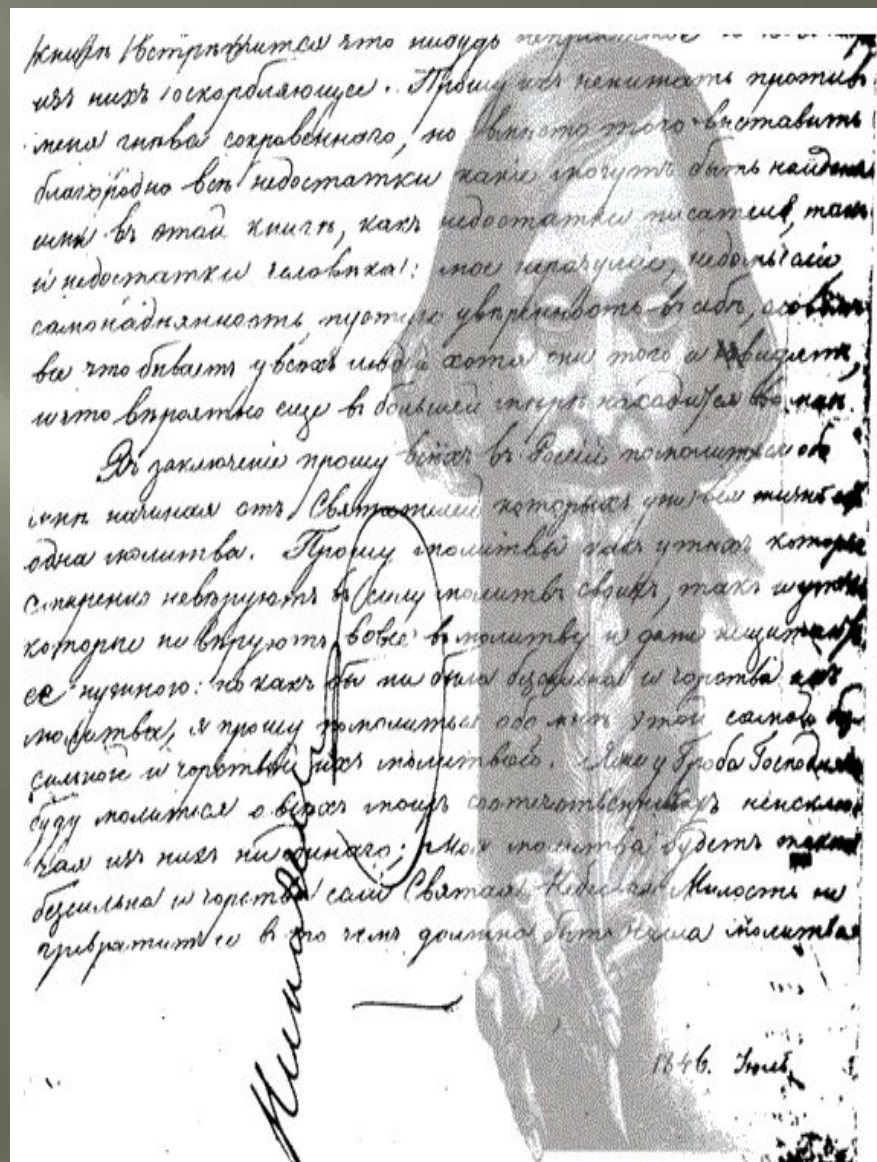 книгѣ встрѣтится что нибудь непріятное
изъ нихъ оскорбляющее. Прошу ихъ непитать противъ
меня гнѣва сокровеннаго, но вмѣсто того выставить
благородно всѣ недостатки какіе могутъ быть найдены
ими въ этой книгѣ, какъ недостатки писателя, такъ
и недостатки человѣка: мое неразуміе, недомысліе
самонадѣянность, пустую увѣренность въ себѣ,
все что бываетъ у всѣхъ людей хотя они того и невидятъ,
и что вѣроятно еще въ большей мѣрѣ находится во мнѣ.
Въ заключеніе прошу всѣхъ въ Россіи помолиться обо
мнѣ начиная отъ Святителей которыхъ уже вся жизнь есть
одна молитва. Прошу молитвы какъ у тѣхъ которые
смиренно невѣруютъ въ силу молитвъ своихъ, такъ и у тѣхъ
которые не вѣруютъ вовсе въ молитву и даже несчитаютъ
ее нужною: но какъ бы ни была безсильна и черства ихъ
молитва, я прошу помолиться обо мнѣ этой самой без
сильной и черствой ихъ молитвой. Я же у Гроба Господня
буду молиться о всѣхъ моихъ соотечественникахъ неисклю
чая изъ нихъ ни единаго; Моя молитва будетъ также
безсильна и черства если Святая Небесная Милость не
превратитъ ее въ то чѣмъ должна быть наша молитва
1846. Іюль